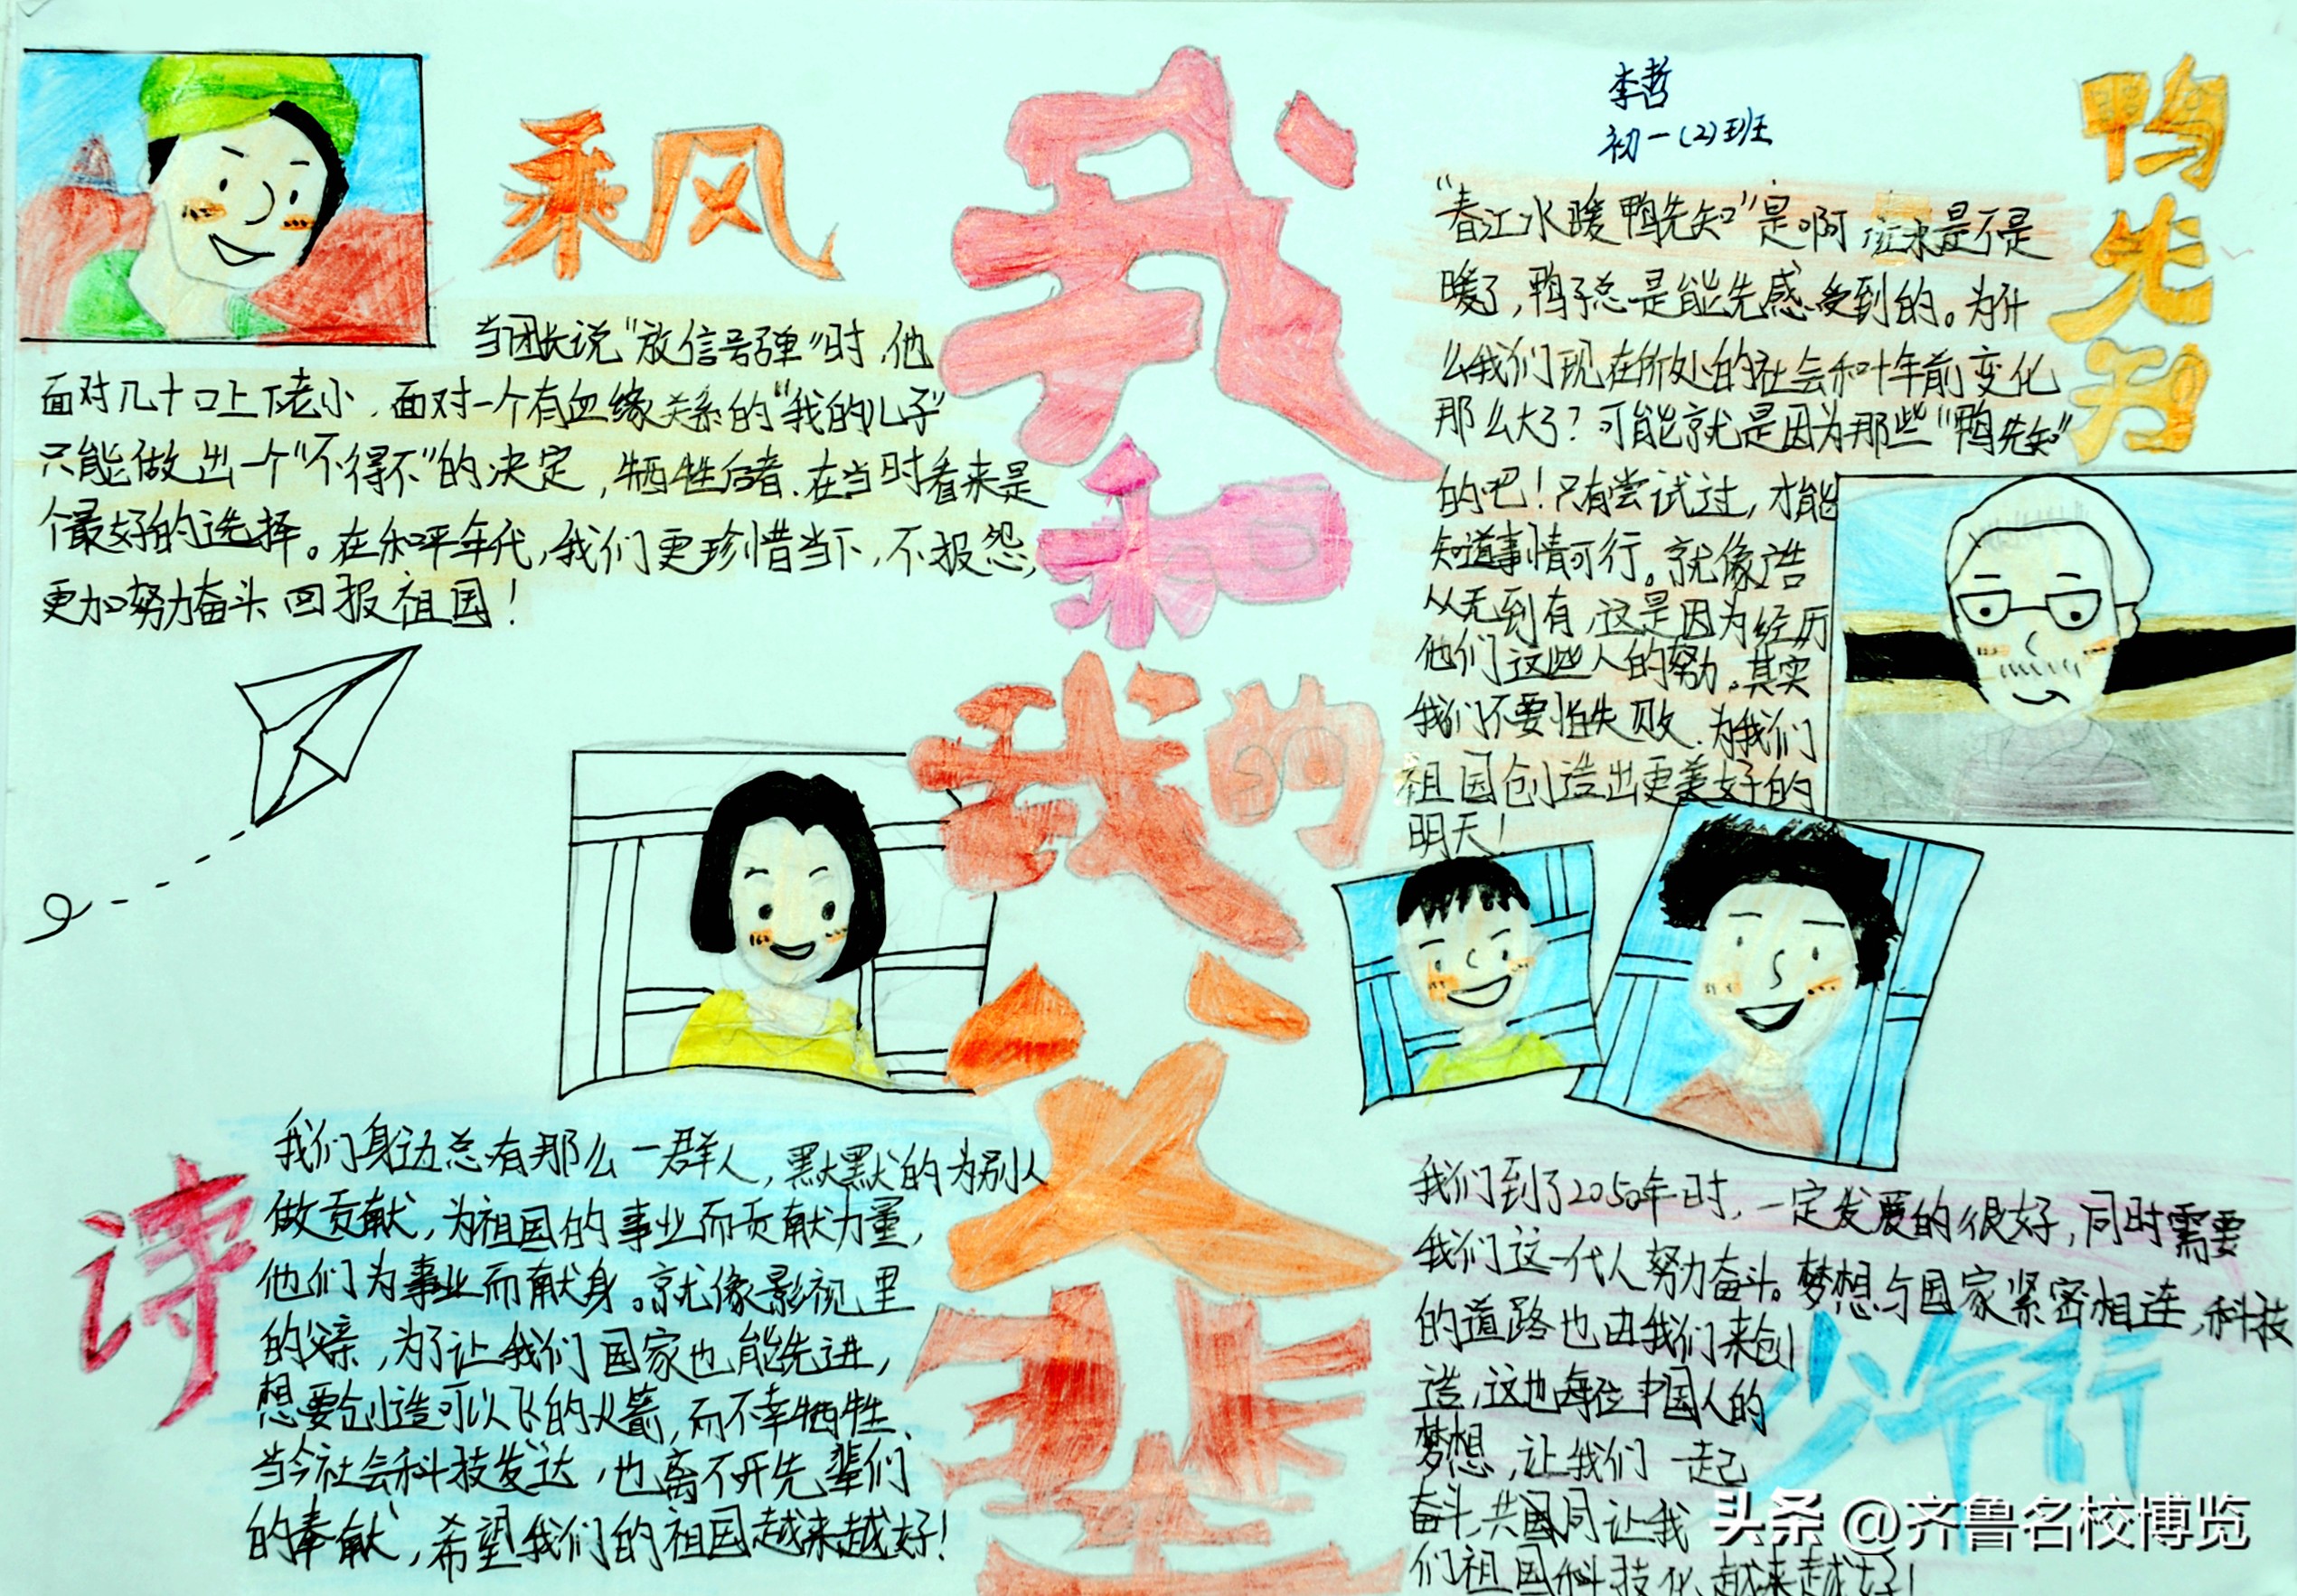 乘风
当团长说“放信号弹”时,他
面对几十口上下老小,面对一个有血缘关系的“我的儿子”
只能做出一个“不得不”的决定,牺牲后者.在当时看来是
个最好的选择。在和平年代,我们更珍惜当下,不报怨,
更加努力奋斗回报祖国!
我和我的父辈
李哲
初一(2)班
鸭先知
“春江水暖鸭先知”是啊 水是不是
暖了,鸭子总是能先感受到的。为什
么我们现在所处的社会和年前变化
那么大了?可能就是因为那些“鸭先知”
的吧!只有尝试过,才能
知道事情可行。就像广告
从无到有,这是因为经历
他们这些人的努力。其实
我们不要怕失败.为我们
祖国创造出更美好的
明天!
诗
我们身边总有那么一群人,默默的为别人
做贡献,为祖国的事业而贡献力量,
他们为事业而献身。就像影视里
的父亲,为了让我们国家也能先进,
想要创造可以飞的火箭,而不幸牺牲、
当今社会科技发达,也离不开先辈们
的奉献,希望我们的祖国越来越好!
少年行
我们到了2050年时,一定发爱的很好,同时需要
我们这一代人努力奋斗。梦想与国家紧密相连,科技
的道路也由我们来创
造,这也每位中国人的
梦想,让我们一起
奋斗,共同让我
们祖国科技化越来越好!
头条@齐鲁名校博览